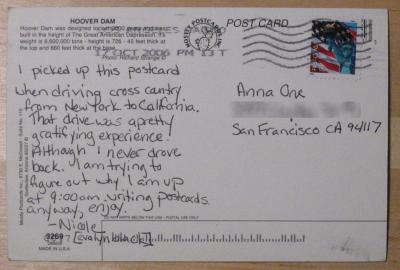 HOOVER DAM
POST CARD
Hoover Dam was designed
built in the height of The Great American Depression. It's
weight is 6,600,000 tons - height is 726 - 45 feet thick at the top
and 660 feet thick at the base.
Photo: Richard Strange ©
17 OCT 2006 PM 13 T
MOSTLY POSTCARDS INC.
I picked up this postcard
when driving cross cantry
from New York to California.
That drive was a pretty
gratifying experience.
Although I never drove
back. I am trying to
figure out why I am up
at 9:00am writing postcards.
anyway, enjoy.
- Nicole
[evalynblack]
Anna One
San Francisco CA 94117
DO NOT WRITE BELOW THIS LINE - POSTAL USE ONLY
3269
MADE IN U.S.A.